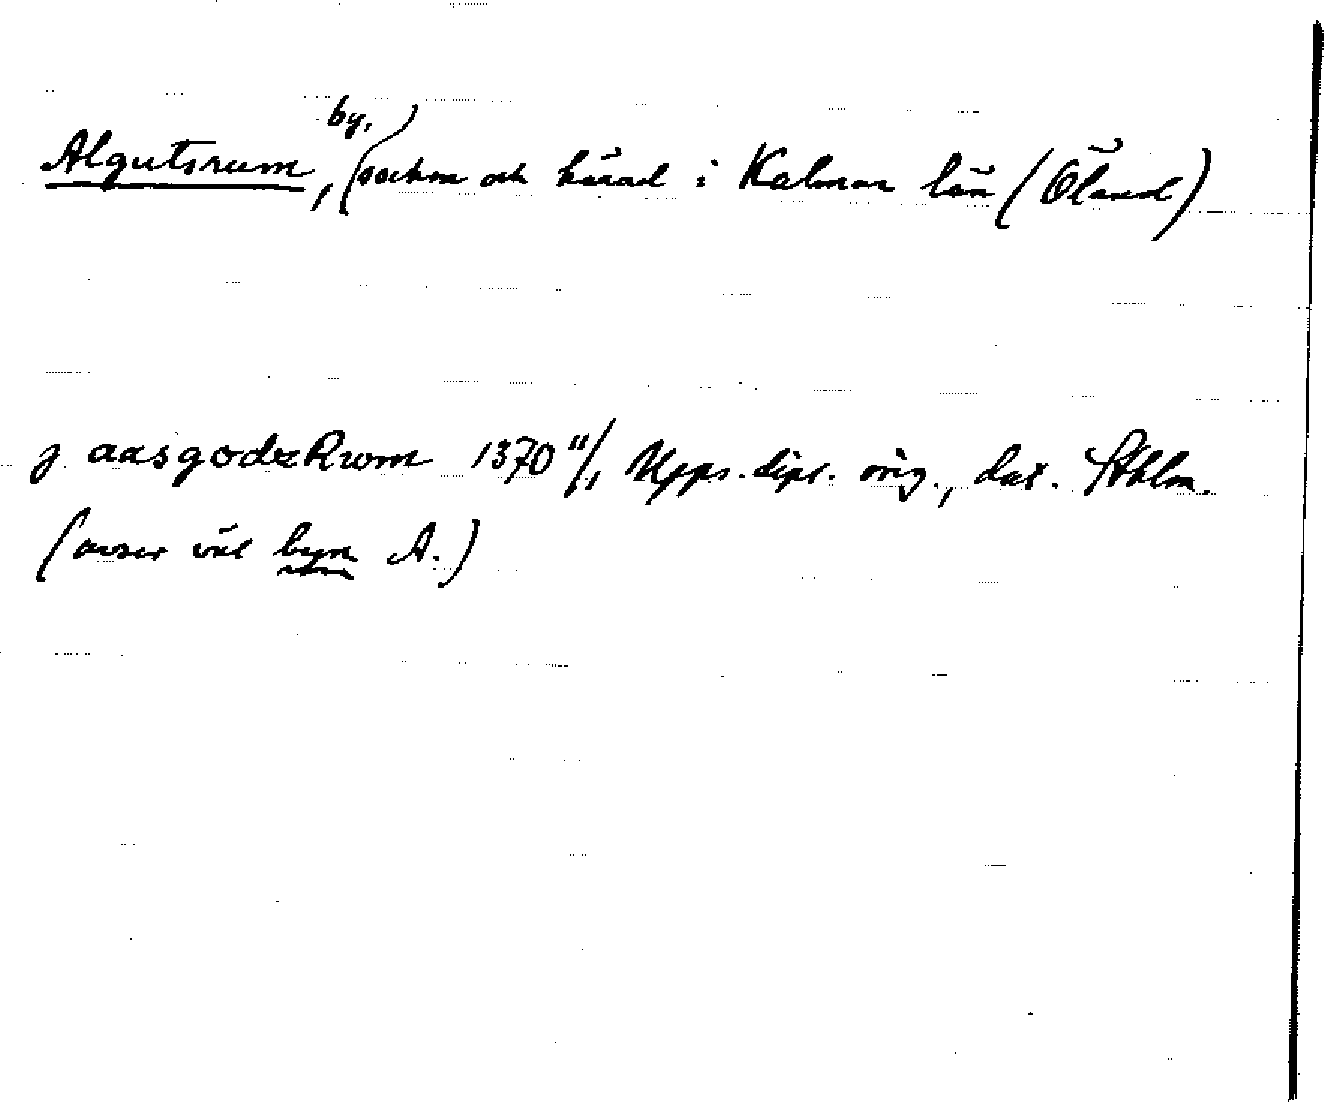 Algutsrum, by, (socken och härad i Kalmar län (Öland)
j aasgodzRwm 1370 11/1 Upps. dipl. orig., dat. Sthlm.
(avser väl byn A.)